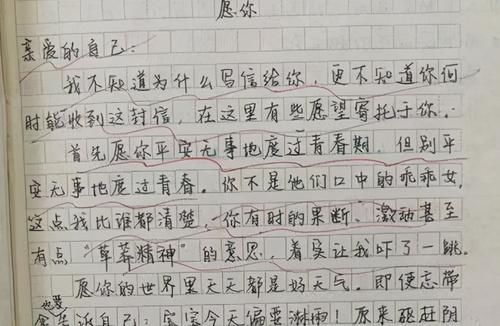 愿你
亲爱的自己：
我不知道为什么写信给你，更不知道你何
时能收到这封信，在这里有些愿望寄托于你．
首先愿你平安无事地度过青春期，但别平
安无事地度过青春。你不是他们口中的乖乖女，
这点我比谁都清楚，你有时的果断、激动甚至
有点“草莽精神”的意思，着实让我吓了一跳。
愿你的世界里天天都是好天气。即使忘带
也要
告诉自己：老天今天偏要淋雨！原来硬赶阴